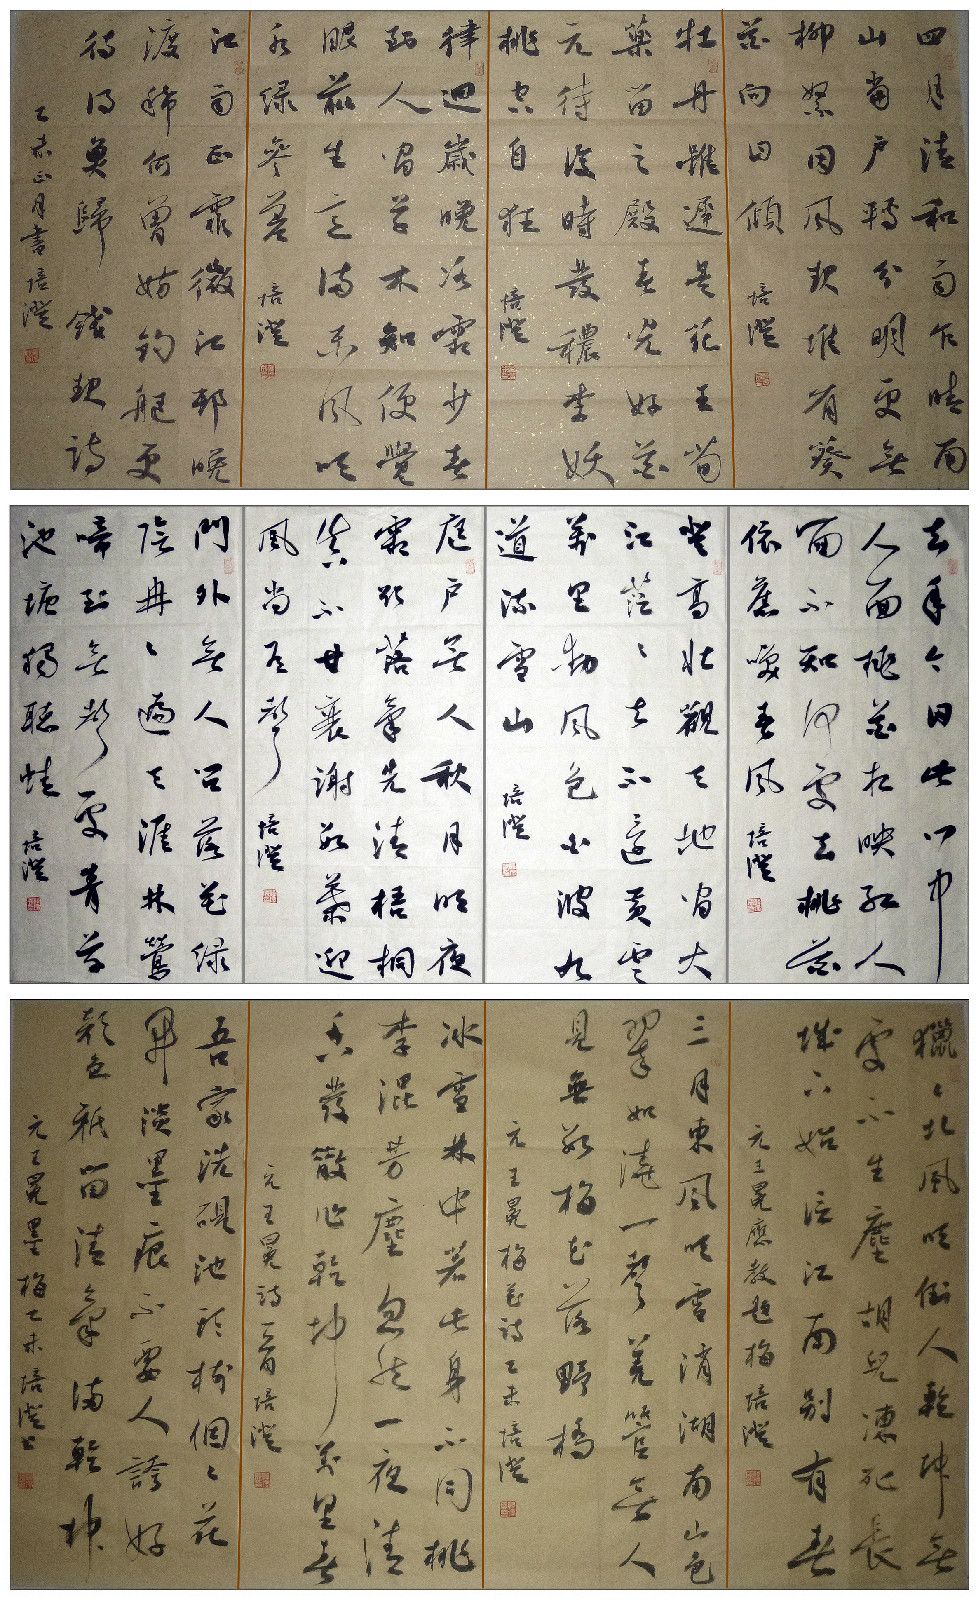 四月清和雨乍晴南
山當戶轉分明更無
柳絮因風起惟有葵
花向日傾
培澄
牡丹雖遲是花王芍
藥留之殿春光好花
元待後時發穠李妖
桃空自狂
培澄
律迴歲晚冰霜少春
到人間草木知便覺
眼前生意滿東風吹
水綠參差
培澄
江雨正霏微江邨晚
渡稀何曾妨釣艇更
待得魚歸 錢起詩
乙未正月書培澄
去年今日此门中
人面桃花相映紅人
面不知何處去桃花
依舊笑春風
培澄
登高壯觀天地間大
江茫〻去不還黃雲
萬里動風色白波九
道流雪山
培澄
庭户无人秋月明夜
霜欲落氣先清梧桐
真不甘衰謝數葉迎
風尚有聲
培澄
門外無人问落花綠
陰冉〻遍天涯林鶯
啼到無聲處青草
池塘獨聽蛙
培澄
獵〻北風吹倒人乾坤無
處不生塵胡兒凍死長
城下始信江南别有春
元王冕應教題梅培澄
三月東風吹雪消湖南山色
翠如澆一聲羌管無人
見無數梅花落野橋
元王冕梅花詩乙未培澄
冰雪林中著此身不同桃
李混芳塵忽然一夜清
香發散作乾坤萬里春
元王冕詩一首培澄
吾家洗硯池頭樹個〻花
開淡墨痕不要人誇好
顏色衹留清氣滿乾坤
元王冕墨梅乙未培澄书